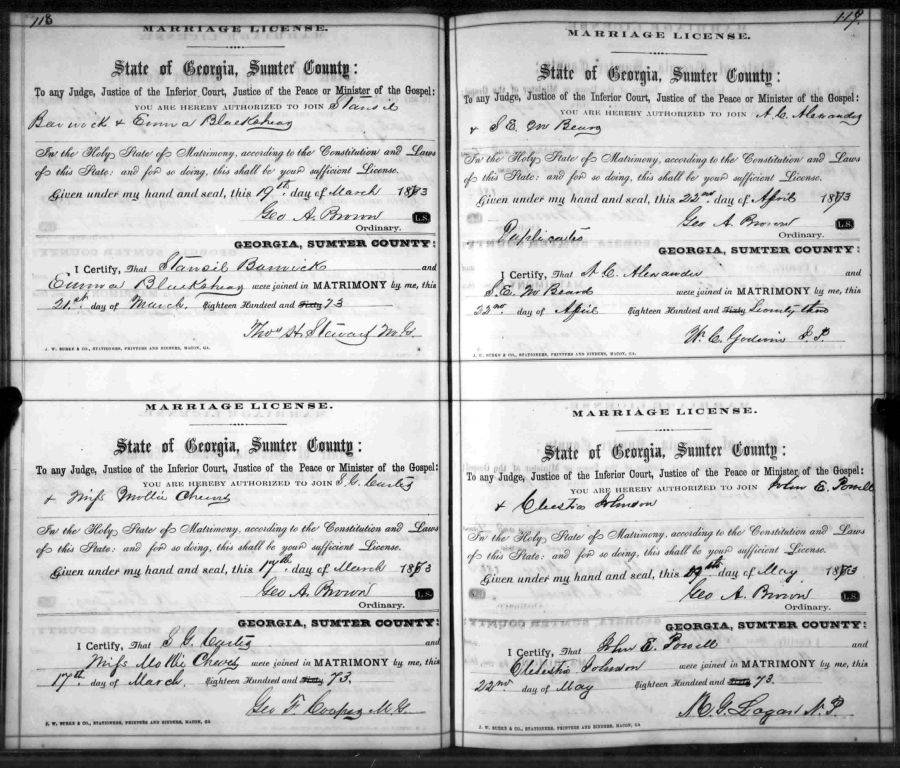 118
MARRIAGE LICENSE.
State of Georgia, Sumter County:
To any Judge, Justice of the Inferior Court, Justice of the Peace or Minister of the Gospel:
YOU ARE HEREBY AUTHORIZED TO JOIN Stansil
Barwick & Emma Blackshear
In the Holy State of Matrimony, according to the Constitution and Laws
of this State: and for so doing, this shall be your sufficient License.
Given under my hand and seal, this 19th day of March 1873
Geo A. Brown L.S.
Ordinary.
GEORGIA, SUMTER COUNTY:
I Certify, That Stansil Barwick and
Emma Blackshear were joined in MATRIMONY by me, this
21st day of March. Eighteen Hundred and Sixty 73
Thos H. Stewart M.G.
J. W. BURKE & CO., STATIONERS, PRINTERS AND BINDERS, MACON, GA.
MARRIAGE LICENSE.
State of Georgia, Sumter County:
To any Judge, Justice of the Inferior Court, Justice of the Peace or Minister of the Gospel:
YOU ARE HEREBY AUTHORIZED TO JOIN S. G.
& Miss Mollie
In the Holy State of Matrimony, according to the Constitution and Laws
of this State: and for so doing, this shall be your sufficient License.
Given under my hand and seal, this 17th. day of March 1873
Geo A. Brown L.S.
Ordinary.
GEORGIA, SUMTER COUNTY:
I Certify, That S. G. and
Miss Mollie were joined in MATRIMONY by me, this
17th day of March. Eighteen Hundred and Sixty 73.
Geo F. Cooper M.G.
J. W. BURKE & CO., STATIONERS, PRINTERS AND BINDERS, MACON, GA.
119.
MARRIAGE LICENSE.
State of Georgia, Sumter County:
To any Judge, Justice of the Inferior Court, Justice of the Peace or Minister of the Gospel:
YOU ARE HEREBY AUTHORIZED TO JOIN A. C. Alexander
& S. E. McBeard
In the Holy State of Matrimony, according to the Constitution and Laws
of this State: and for so doing, this shall be your sufficient License.
Given under my hand and seal, this 22nd. day of April 1873
Geo A. Brown L.S.
Ordinary.
GEORGIA, SUMTER COUNTY:
I Certify, That A. C. Alexander and
S. E. McBeard were joined in MATRIMONY by me, this
22nd day of April Eighteen Hundred and Sixty Seventy three
W. C. Godwin J. P.
J. W. BURKE & CO., STATIONERS, PRINTERS AND BINDERS, MACON, GA.
MARRIAGE LICENSE.
State of Georgia, Sumter County:
To any Judge, Justice of the Inferior Court, Justice of the Peace or Minister of the Gospel:
YOU ARE HEREBY AUTHORIZED TO JOIN John E. Powell
& Johnson
In the Holy State of Matrimony, according to the Constitution and Laws
of this State: and for so doing, this shall be your sufficient License.
Given under my hand and seal, this 19th day of May 1873
Geo A. Brown L.S.
Ordinary.
GEORGIA, SUMTER COUNTY:
I Certify, That John E. Powell and
Johnson were joined in MATRIMONY by me, this
22nd day of May Eighteen Hundred and Sixty 73.
M. G. Logan N. P.
J. W. BURKE & CO., STATIONERS, PRINTERS AND BINDERS, MACON, GA